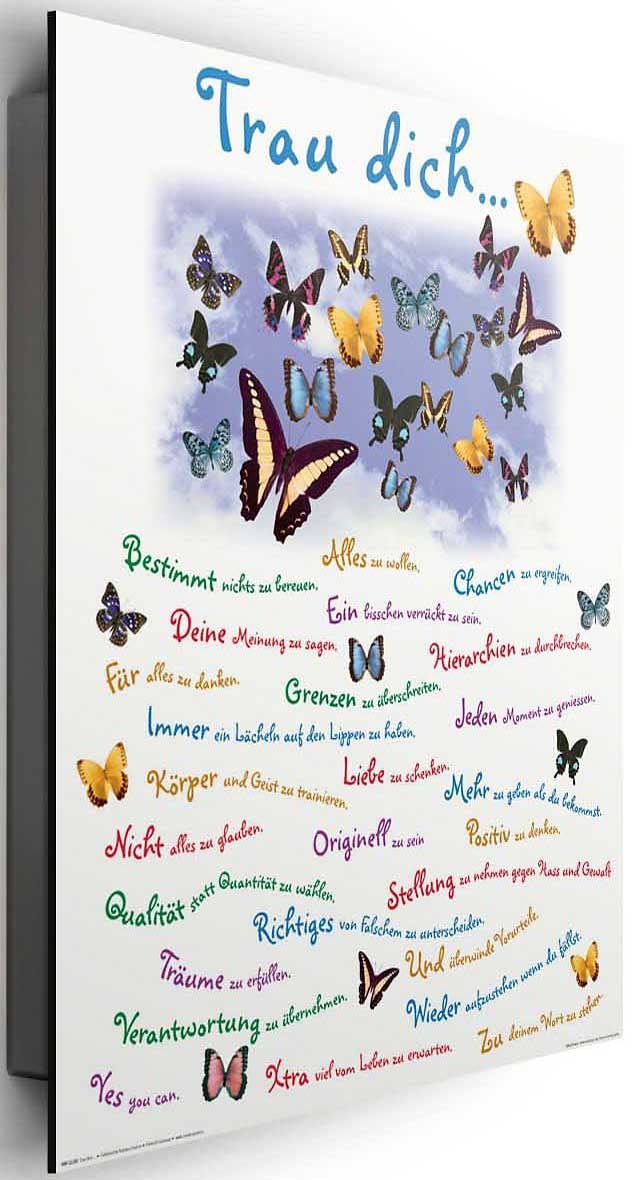 Trau dich...
Alles zu wollen.
Bestimmt nichts zu bereuen.
Chancen zu ergreifen.
Ein bisschen verrückt zu sein.
Deine Meinung zu sagen.
Hierarchien zu durchbrechen.
Für alles zu danken.
Grenzen zu überschreiten.
Jeden Moment zu geniessen.
Immer ein Lächeln auf den Lippen zu haben.
Liebe zu schenken.
Körper und Geist zu trainieren.
Mehr zu geben als du bekommst.
Nicht alles zu glauben.
Originell zu sein
Positiv zu denken.
Qualität statt Quantität zu wählen.
Stellung zu nehmen gegen Hass und Gewalt
Richtiges von Falschem zu unterscheiden.
Träume zu erfüllen.
Und überwinde Vorurteile.
Wieder aufzustehen wenn du fällst.
Verantwortung zu übernehmen.
Zu deinem Wort zu stehen
Yes you can.
Xtra viel vom Leben zu erwarten.